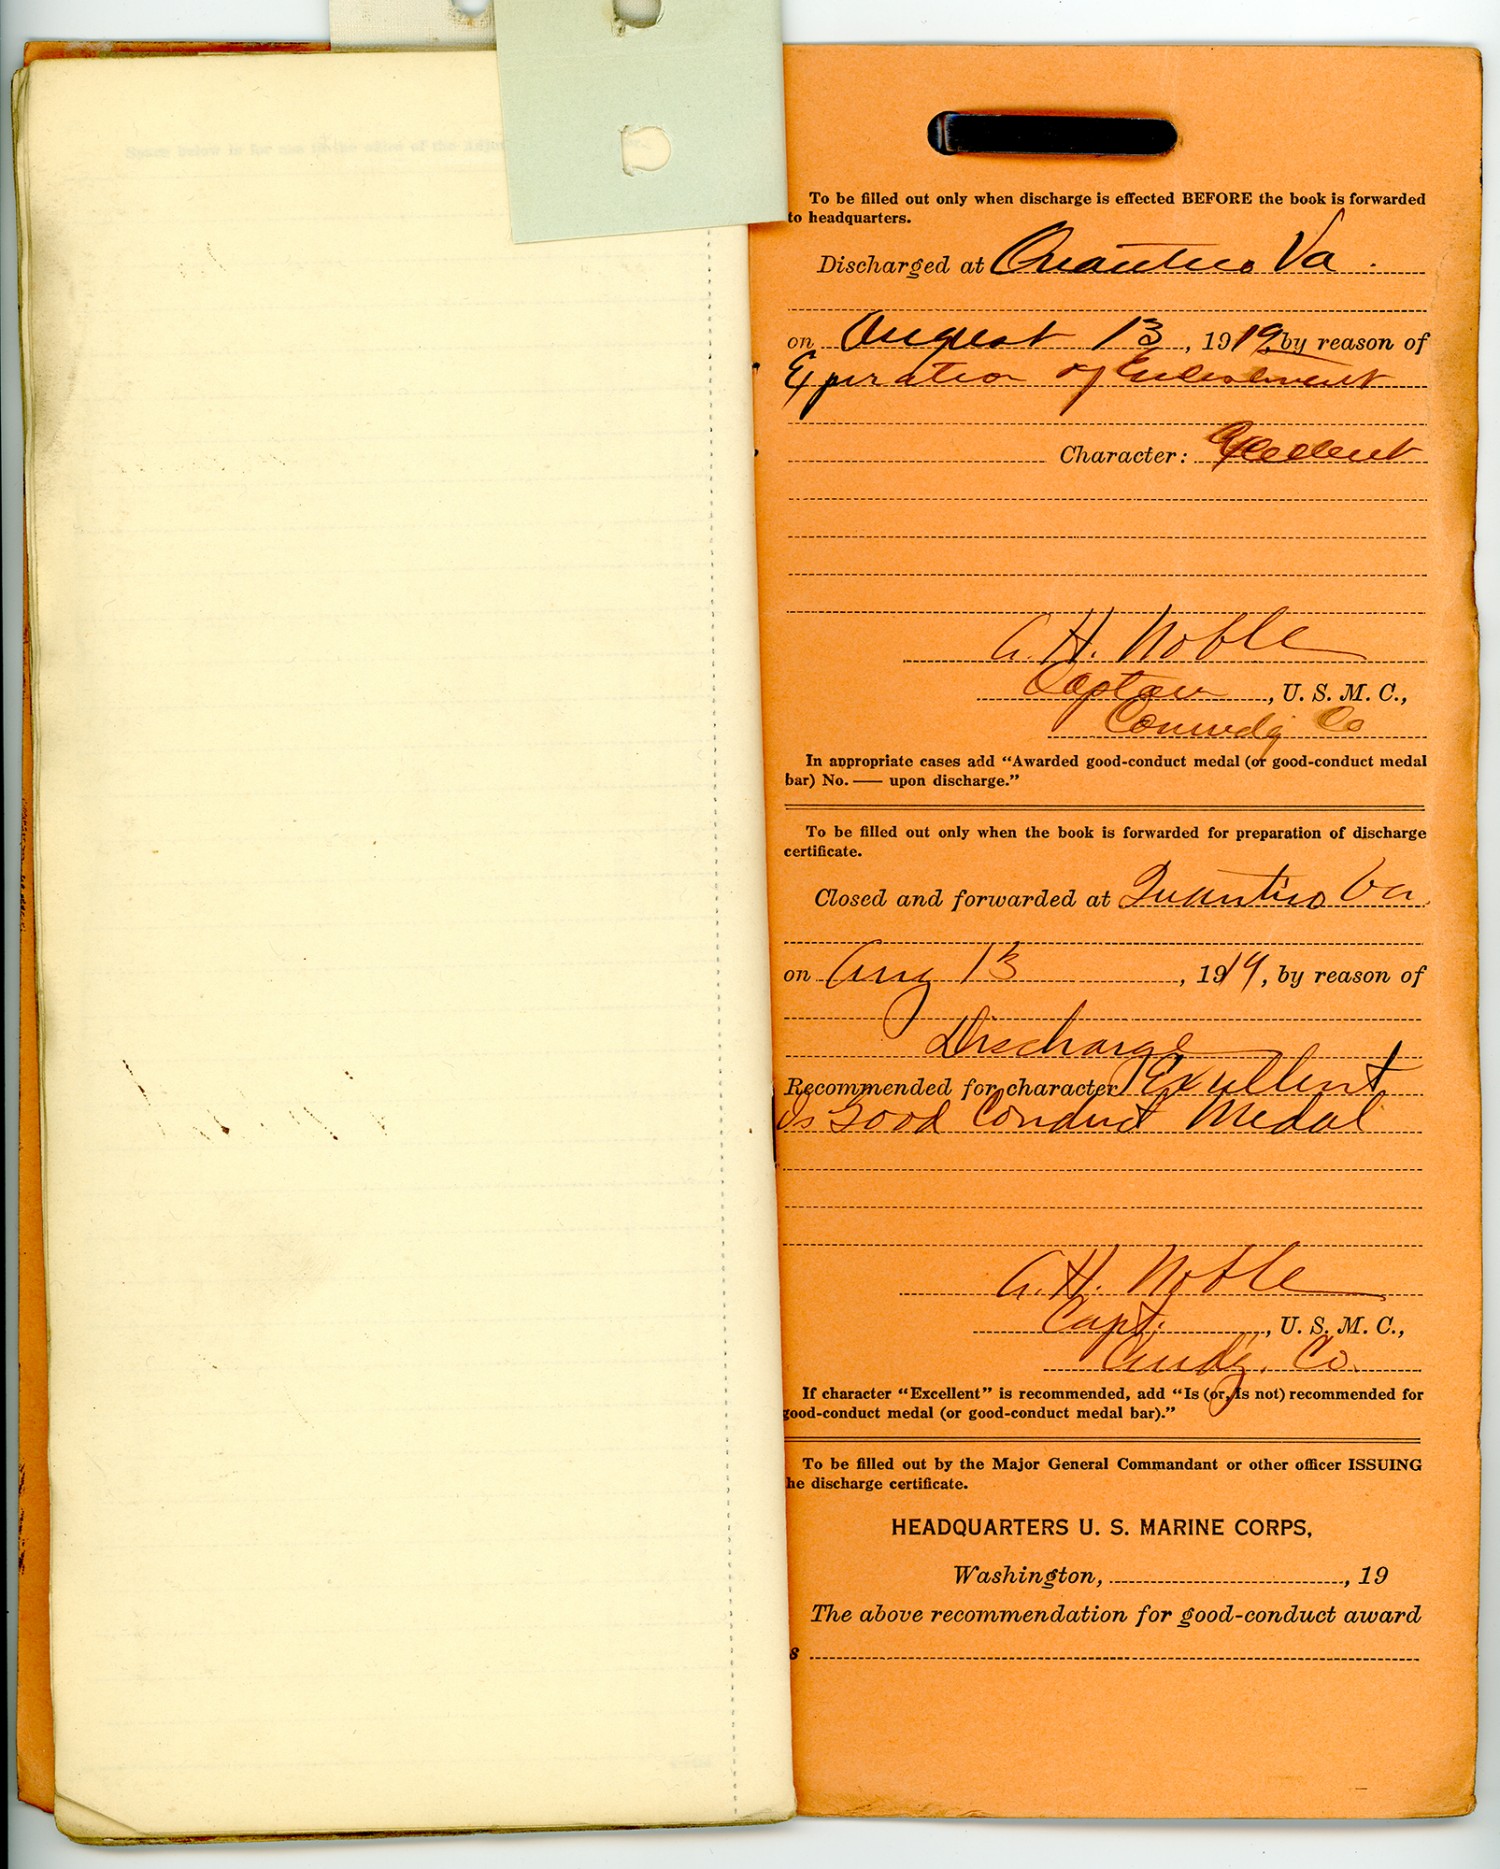 To be filled out only when discharge is effected BEFORE the book is forwarded
to headquarters.
Discharged at Quantico Va.
on August 13, 1919, by reason of
Expiration of Enlistment
Character: Excellent
A. H. Noble
Captain, U. S. M. C.,
Commdg Co
In appropriate cases add "Awarded good-conduct medal (or good-conduct medal
bar) No. — upon discharge."
To be filled out only when the book is forwarded for preparation of discharge
certificate.
Closed and forwarded at Quantico Va.
on Aug 13, 1919, by reason of
Discharge
Recommended for character Excellent
Is Good Conduct Medal
A. H. Noble
Capt., U. S. M. C.,
Cmdg. Co.
If character "Excellent" is recommended, add "Is (or, is not) recommended for
good-conduct medal (or good-conduct medal bar)."
To be filled out by the Major General Commandant or other officer ISSUING
he discharge certificate.
HEADQUARTERS U. S. MARINE CORPS,
Washington, , 19
The above recommendation for good-conduct award
s